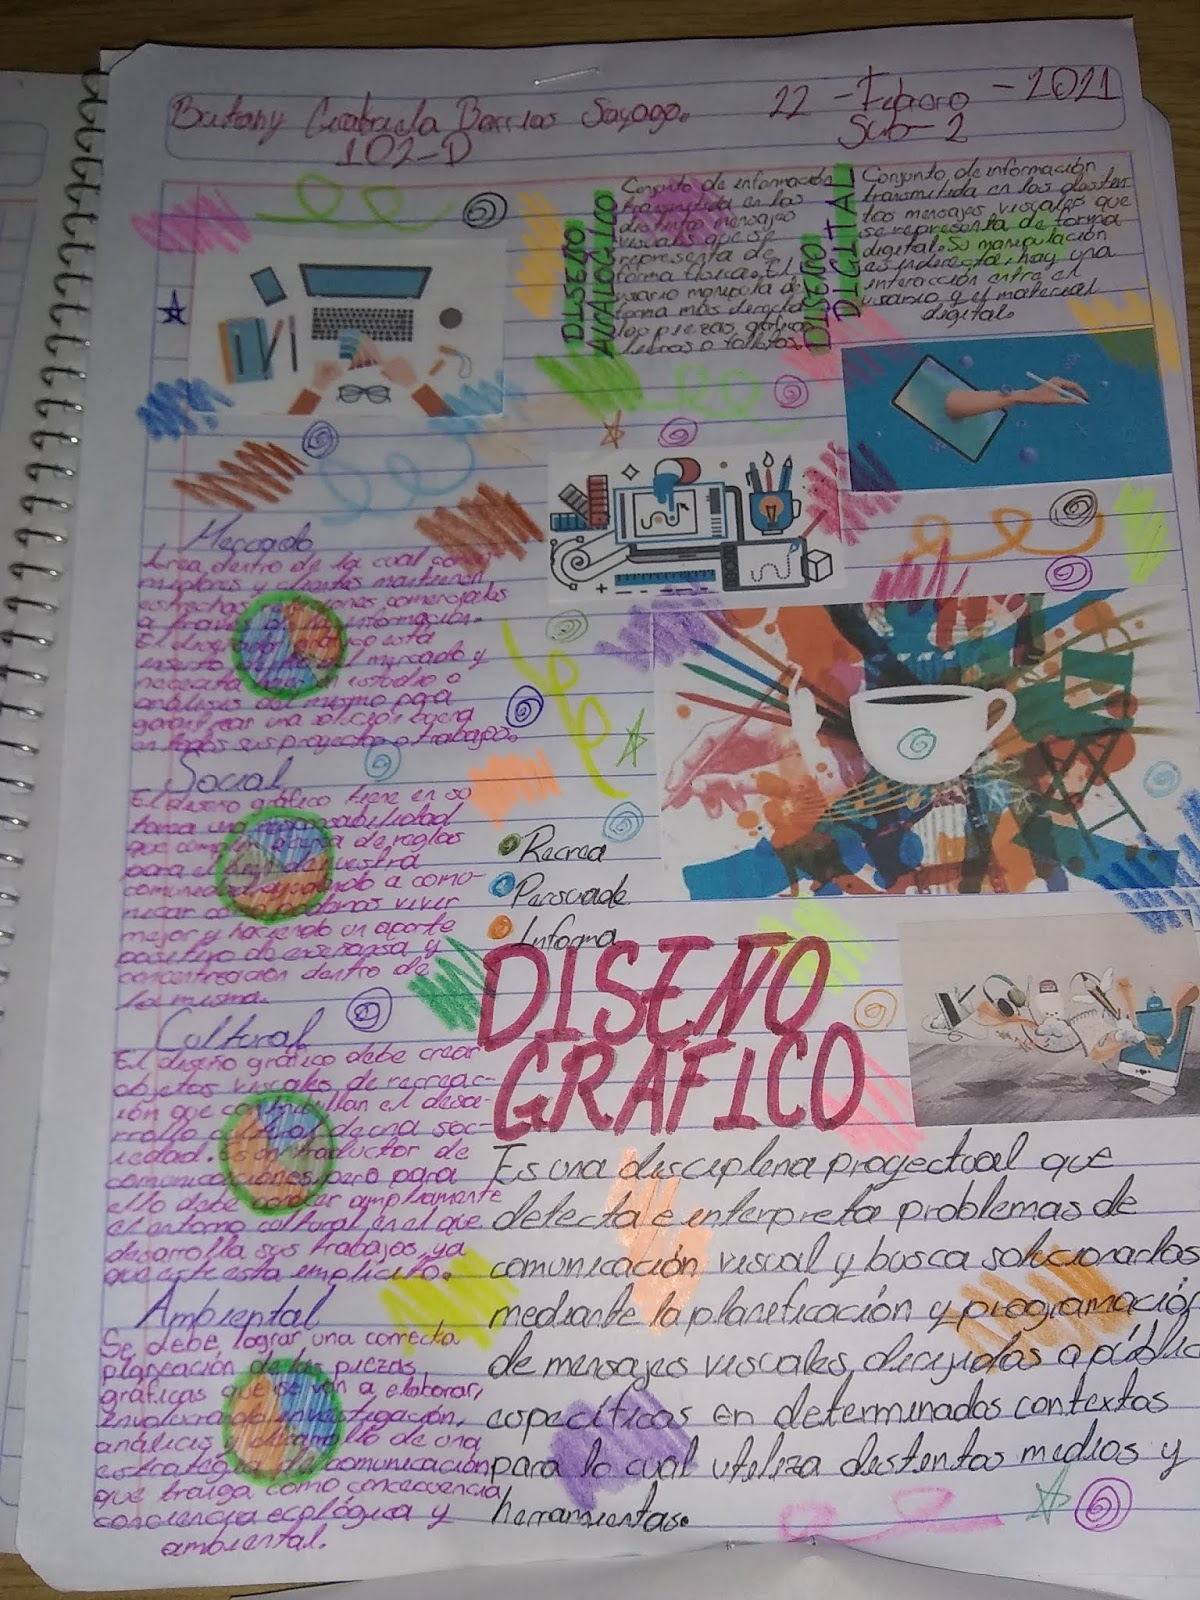 Britany Gabriela Barrios Sayago. 22 - Febrero - 2021
102-D Sub-2
DISEÑO
ANALOGICO
Conjunto de información
transmitida en los
distinto mensajes
visuales que se
representa de
forma fisica. El
usario manipula de
forma más directa
las piezas gráficas
libros o folletos.
DISEÑO
DIGITAL
Conjunto de información
transmitida en los distin-
tos mensajes visuales que
se representa de forma
digital. Su manipulación
es indirecta, hay una
interacción entre el
usario y el material
digital.
Mercado
Area dentro de la cual com-
pradores y clientes mantienen
estrechas relaciones comerciales
a través de la información.
El diseñador gráfico está
inserto dentro del mercado y
necesita hacer un estudio o
análisis del mismo para
garantizar una solución buena
en todos sus proyectos o trabajos.
Social
El diseño gráfico tiene en su
tarea una responsabilidad
que cumplir acerca de reglas
para el bien de nuestra
comunidad, ayudando a comu-
nicar como podemos vivir
mejor y haciendo un aporte
positivo de enseñansa y
concentración dentro de
la misma.
Cultural
El diseño gráfico debe crear
objetos visuales de recreac-
ión que contribullan el desa-
rrollo cultural de una soc-
iedad. Es un traductor de
comunicaciones pero para
ello debe conocer ampliamente
el entorno cultural en el que
desarrolla sus trabajos, ya
que este esta implicito.
Ambiental
Se debe lograr una correcta
planeación de las piezas
gráficas que se van a elaborar,
involucrando investigación,
análisis y desarrollo de una
estrategia de comunicación
que traiga como concecuencia
conciencia ecológica y
ambiental.
Recrea
Persuade
Informa
DISEÑO
GRAFICO
Es una disciplina proyectual que
detecta e interpreta problemas de
comunicación visual y busca solucionarlos
mediante la planificación y programación
de mensajes visuales, dirijidos a públic
específicos en determinados contextos
para lo cual utiliza distintos medios y
herramientas.